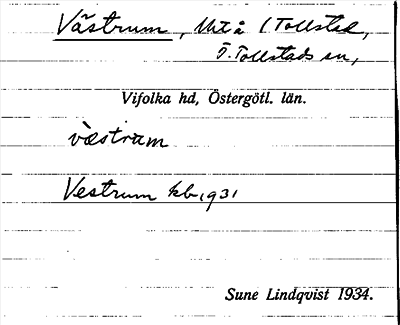 Västrum, Utå (Tollstad,
Ö. Tollstads sn,
Vifolka hd, Östergötl. län.
væstrɑm
Vestrum kb. 1931
Sune Lindqvist 1934.